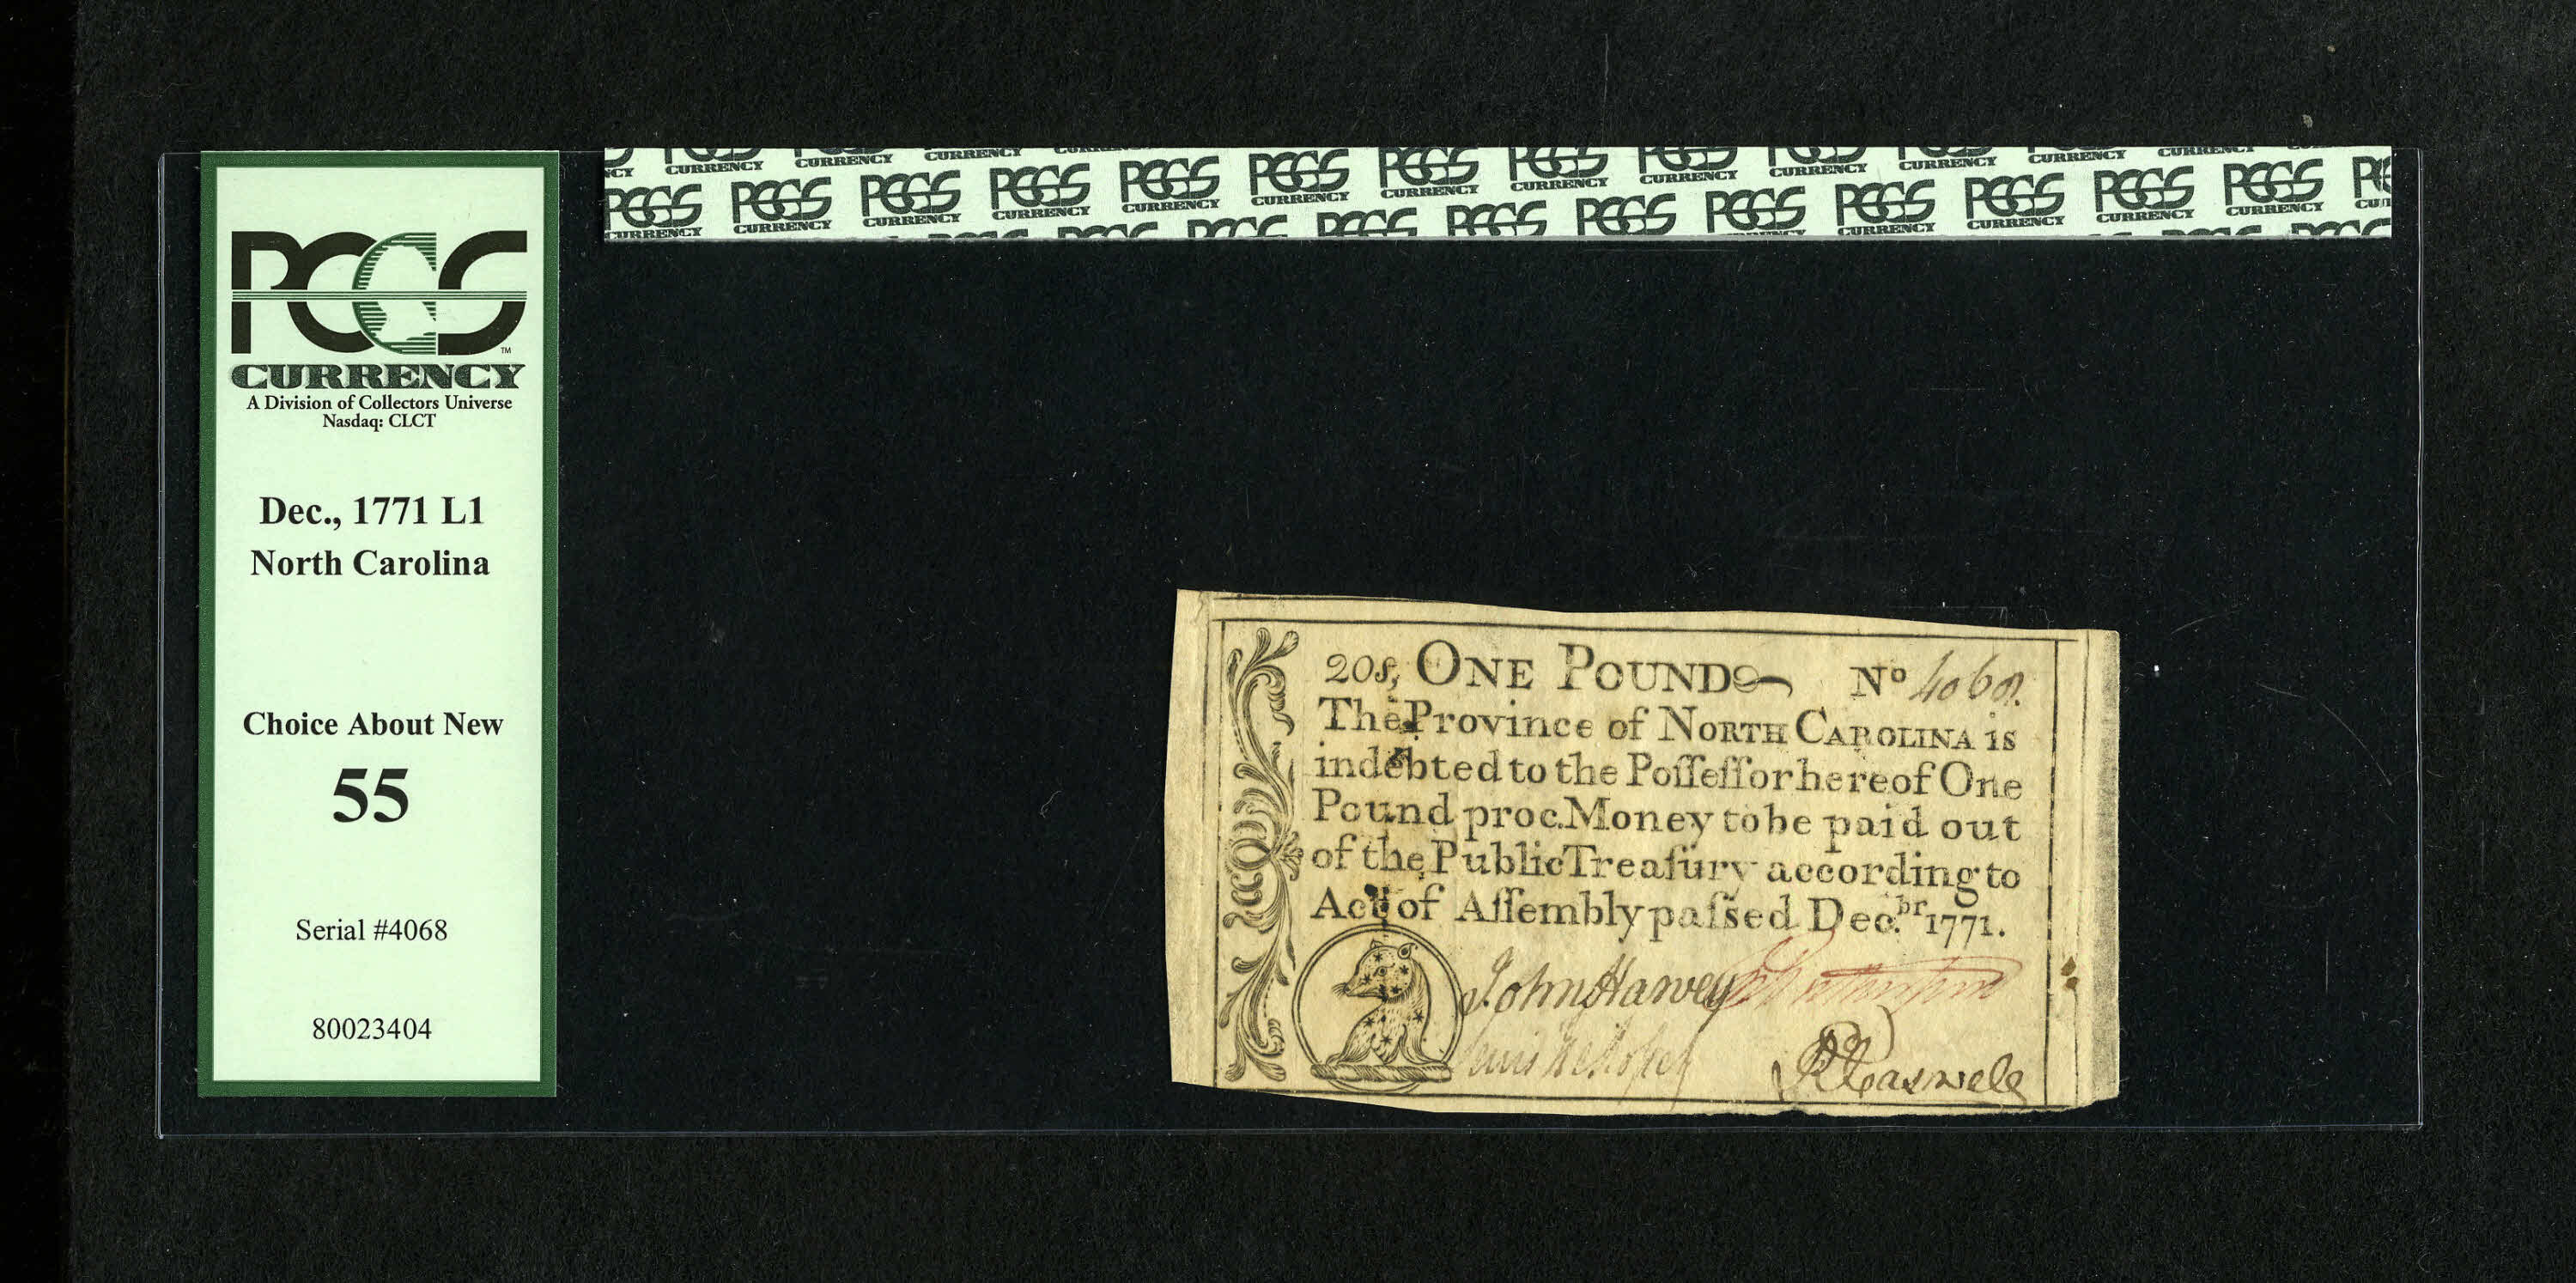 PCGS
TM
CURRENCY
A Division of Collectors Universe
Nasdaq: CLCT
Dec., 1771 L1
North Carolina
Choice About New
55
Serial #4068
80023404
PCGS CURRENCY PCGS CURRENCY PCGS CURRENCY PCGS CURRENCY PCGS CURRENCY PCGS CURRENCY PCGS CURRENCY PCGS CURRENCY PCGS CURRENCY PCGS CURRENCY PCGS CURRENCY PCGS CURRENCY PCGS CURRENCY
20s, ONE POUND Nº 4068.
The Province of NORTH CAROLINA is
indebted to the Poſſeſſor hereof One
Pound proc. Money to be paid out
of the Public Treaſury according to
Act of Aſſembly paſsed Dec.br 1771.
John Harvey
Lewis
RCaswell